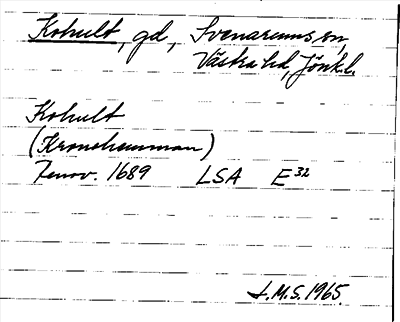 Kohult, gd, Svenarums sn,
Västra hd, Jönk.l.
Kohult
(Kronohemman)
Jenov. 1689 LSA E 32
J.M.S. 1965.